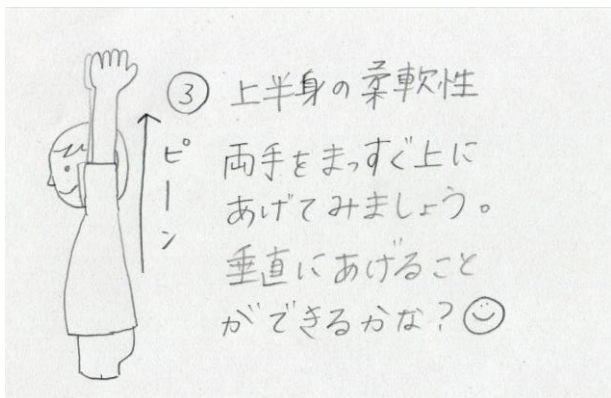 ③ 上半身の柔軟性
ピーン
両手をまっすぐ上に
あげてみましょう。
垂直にあげること
ができるかな？